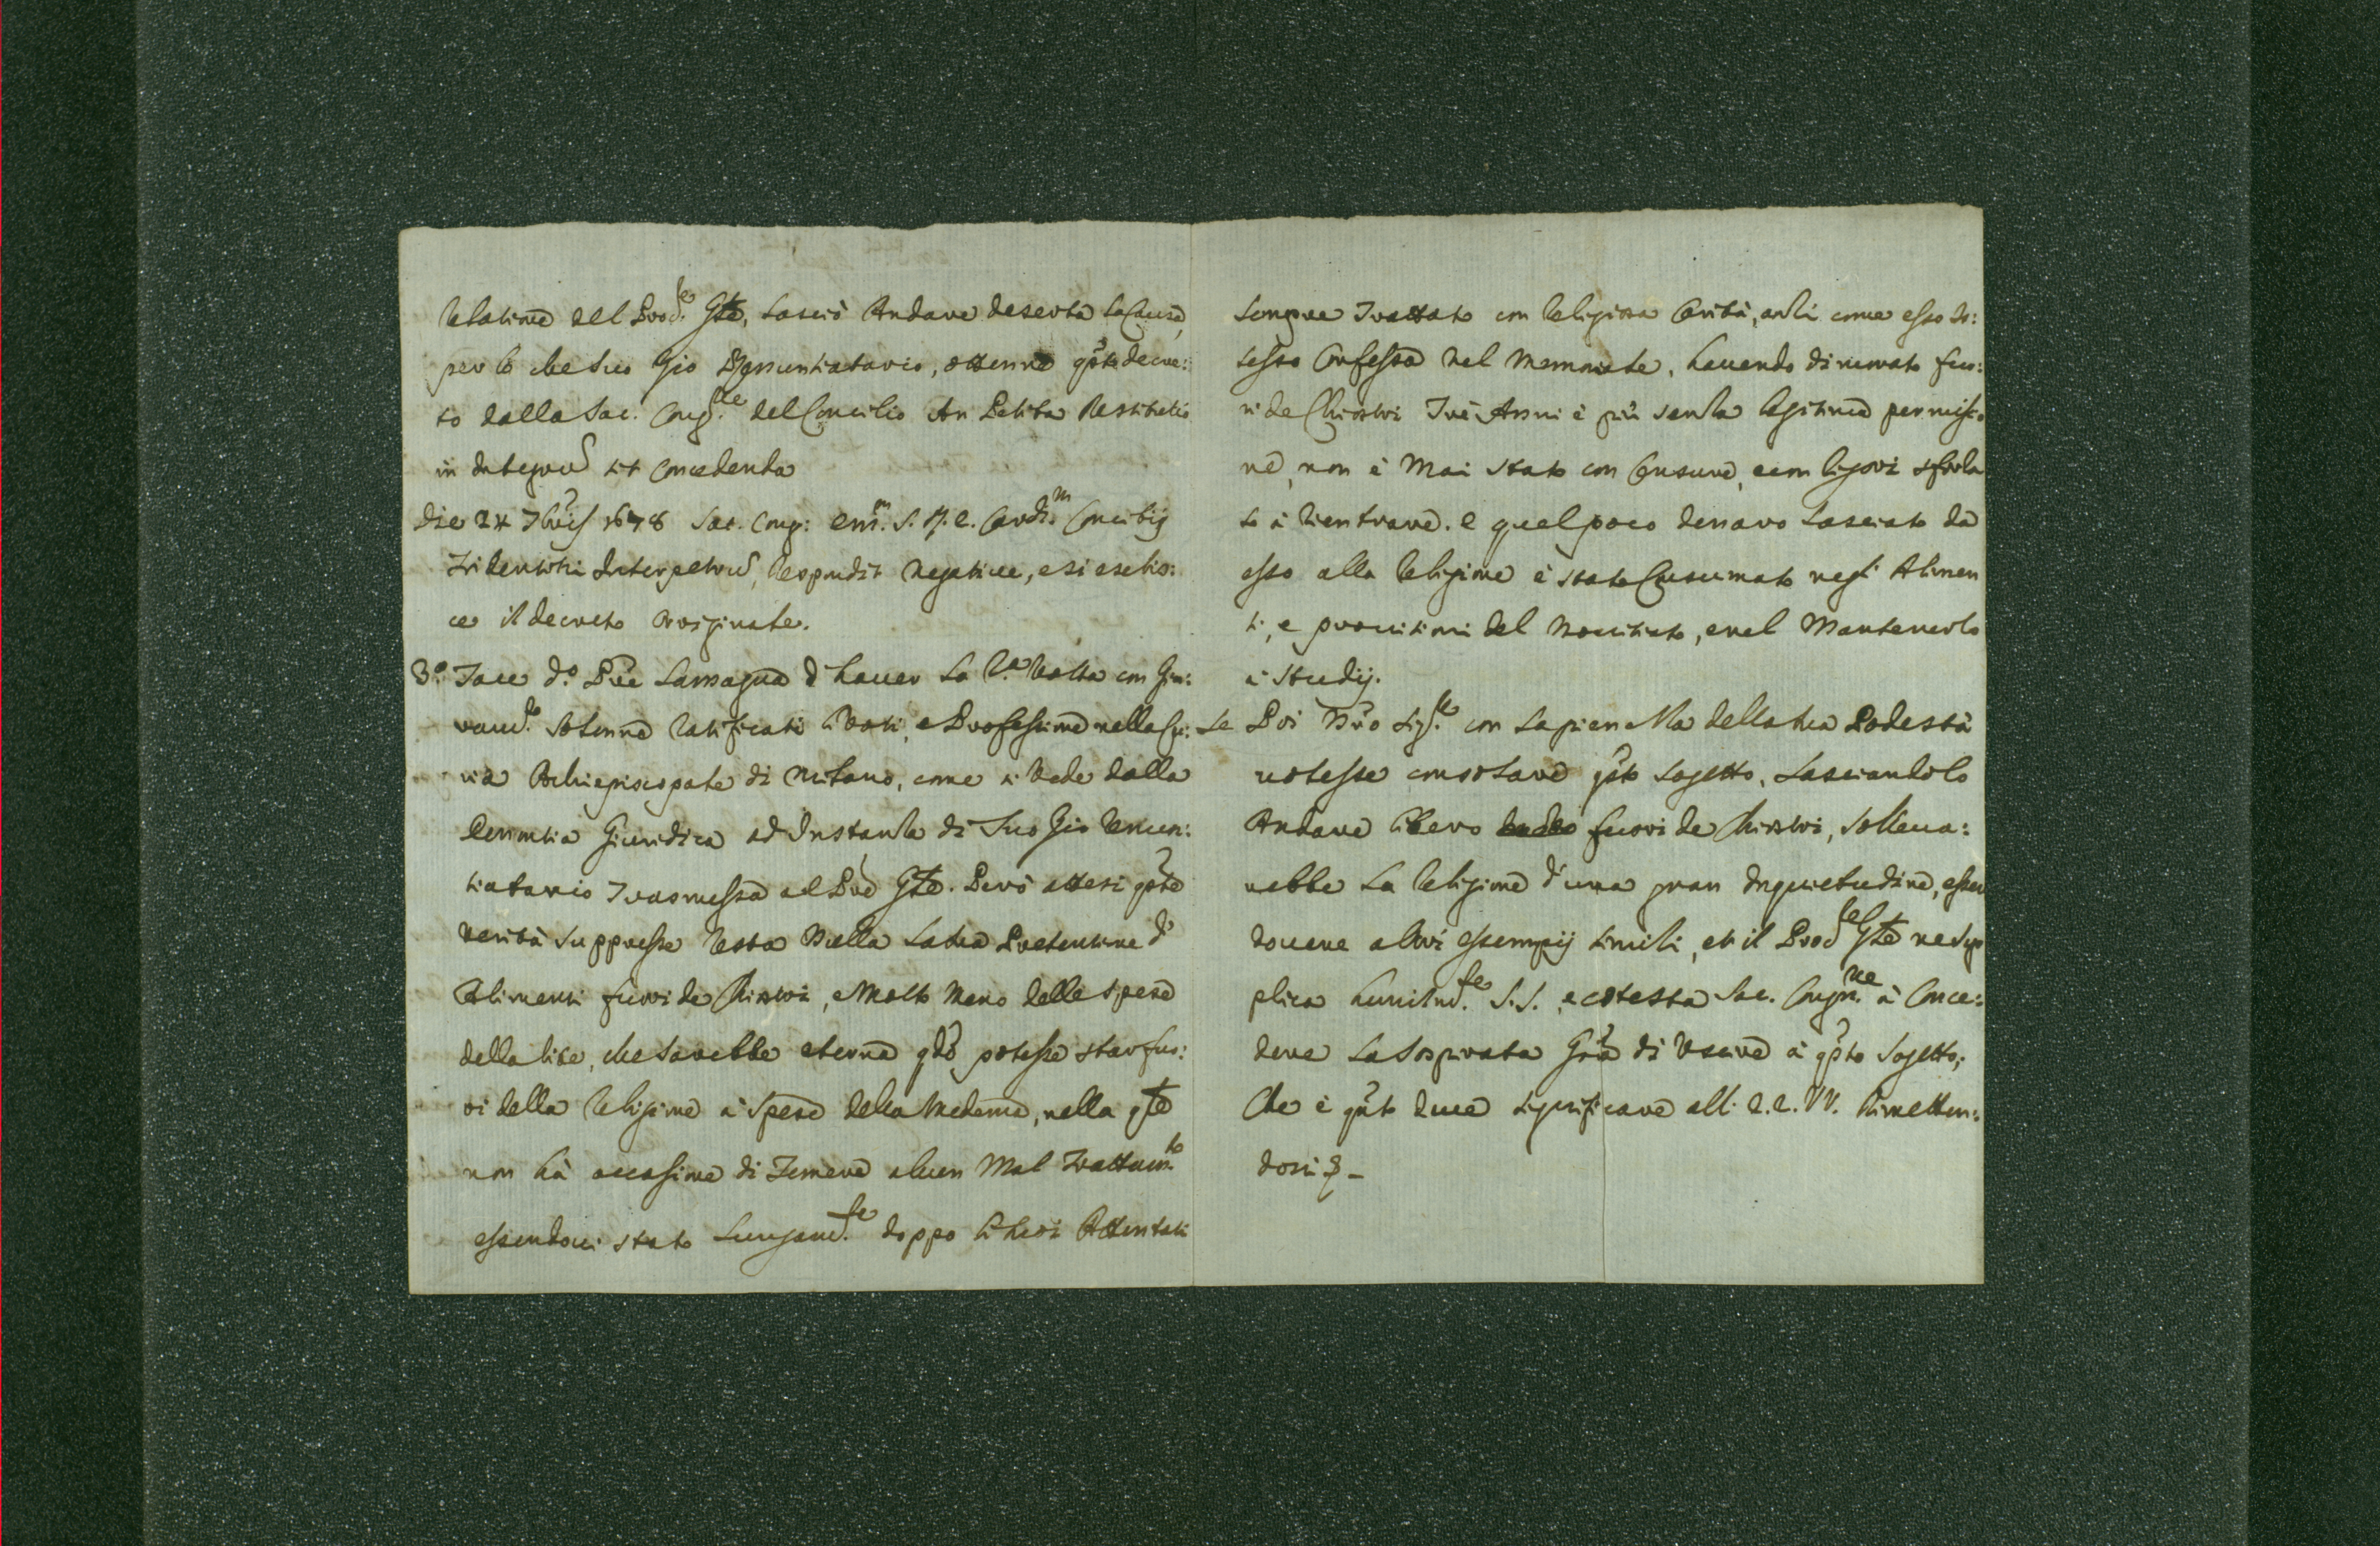 Relatione del Prod.re Gñle, lasciò Andare deserta la Causa,
per lo che suo Zio Renuntiatario, ottenne qsto decre:
to dalla Sac. Cong.ne del Concilio An Petita Restitutio
in Integrũ sit Concedenda
Die 24 7bris 1678 Sac. Cong: Em.m S. R. E. Card.m Concilij
Tridentini Interpetrũ, Respondit Negative, e si esebis:
ce il decreto originale.
3.o Tace d.o Pre Lasagna d'hauer la 2.a Volta con Giu:
ram.to solenne Ratificati i Voti, e Professione nella Cu:
ria Archiepiscopale di Milano, come si Vede dalla
Denuntia Giuridica ad Instanza di Suo Zio Renun:
tiatario Trasmessa al Pre Gñle. Però attesi qste
Verità suppresse Resta Nulla la sua Pretentione d'
Alimenti fuori de Chiostri, e Molto Meno delle spese
della lite, che sarebbe eterna qdo potesse star fuo:
ri della Religione à spese della Medema, nella qle
non hà occasione di Temere alcun Mal Trattam.to
essendoui stato Lungam.te doppo li suoi Attentati
sempre Trattato con Religiosa Carità, anzi come esso is:
tesso Confessa nel Memoriale, hauendo dimorato fuo:
ri de Chiostri Trè Anni è più senza legitima permissio
ne, non è Mai stato con Censure, e con rigori sforza
to à Rientrare. e quel poco denaro lasciato da
esso alla Religione è stato Consumato negl' Alimen
ti, e prouisioni del Nouitiato, e nel Mantenerlo
à Studij.
Se Poi Nro Sig.re con la pienezza della sua Podestà
uolesse consolare qsto sogetto, lasciandolo
Andare libero fuori de Chiostri, solleua:
rebbe la Religione d'una gran Inquietudine, essen
doueue altri essempij simili, et il Prod.re Gñle ne sup
plica humilm.te S. S., e cotesta Sac. Congr.ne à Conce:
dere la sospirata Gratia di Uscire à qsto sogetto;
Che è qsto deuo significare all: E. E. VV. Rimetten:
dosi &c -